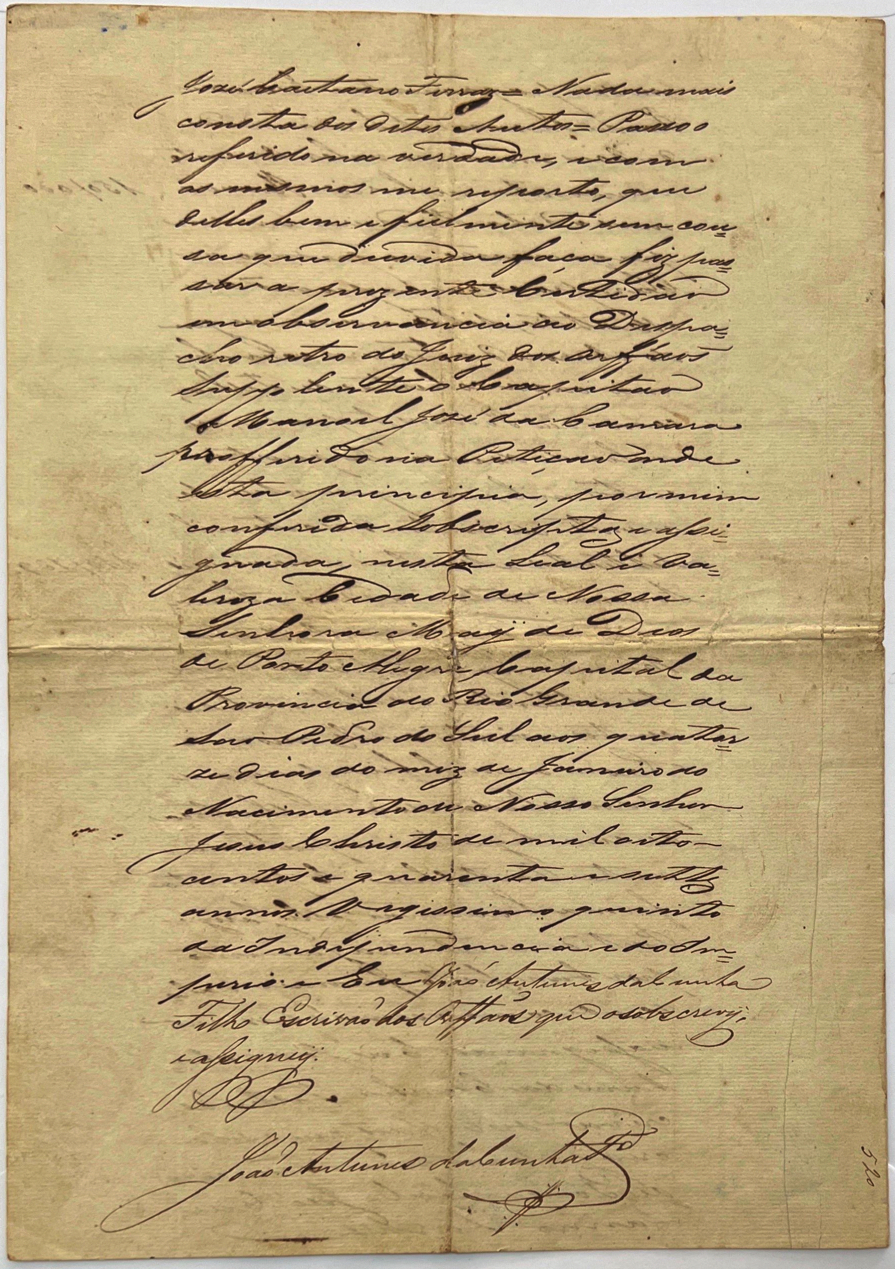 José Caetano Ferraz = Nada mais
consta dos ditos Autos = Passo o
referido na verdade, e com
os mesmos me reporto, que
delles bem e fielmente sem cou=
sa que duvida faça fiz pas=
sar a prezente Certidão
em observancia ao Despa=
cho retro do Juiz dos Orfãos
Supplente o Capitão
Manoel José da Camara
profferido na Petição onde
esta principia, por mim
conferida sobscripta e assi=
gnada, nesta Leal e Va=
leroza Cidade de Nossa
Senhora Maÿ de Deos
de Porto Alegre Capital da
Provincia do Rio Grande de
São Pedro do Sul aos quator=
ze dias do mez de Janeiro do
Nacimento de Nosso Senhor
Jesus Christo de mil oito-
centos e quarenta e sette
annos Vegissimo quinto
da Independencia e do Im=
perio e Eu João Antunes da Cunha
Filho Escrivão dos Orffãos que o sobscrevÿ,
e assigneÿ.
João Antunes da Cunha Fº
520